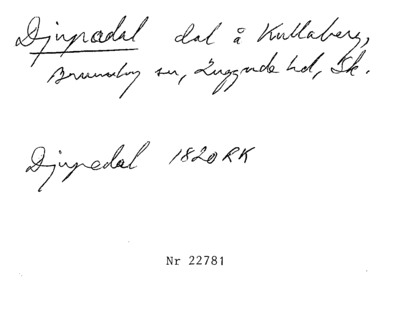 Djupadal dal å Kullaberg,
Brunnby sn, Luggude hd, Sk.
Djupedal 1820 RK
Nr 22781